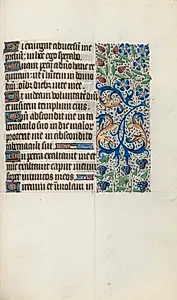 Si exurgat adversum me
prelium: in hoc ego sperabo.
Unam petii a dno hanc re
quiram: ut inhabitem in domo
dni oibz diebz vite mee
Ut videam voluntatem dni
et visitem templum eius.
Qm abscondit me in ta
bernaculo suo in die malor
protexit me in abscondito
tabernaculi sui
In petra exaltavit me et
nunc exaltavit caput meum
super inimicos meos
Circuivi et immolavi in